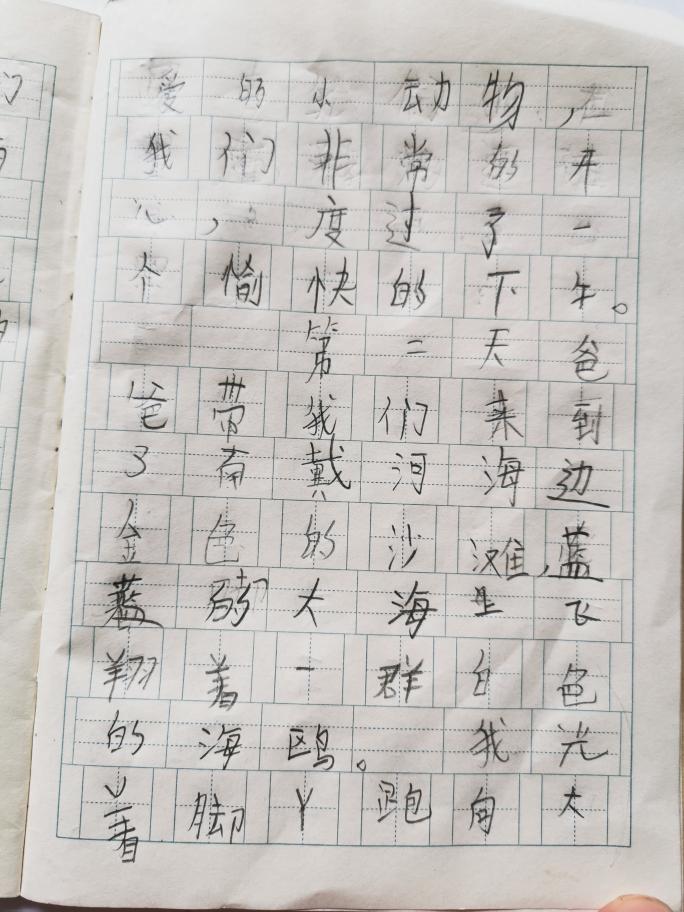 爱的小动物，
我们非常的开
心，度过了一
个愉快的下午。
第二天爸
爸带我们来到
了南戴河海边
金色的沙滩，蓝
蓝的大海里飞
翔着一群白色
的海鸥。我光
着脚丫跑向大